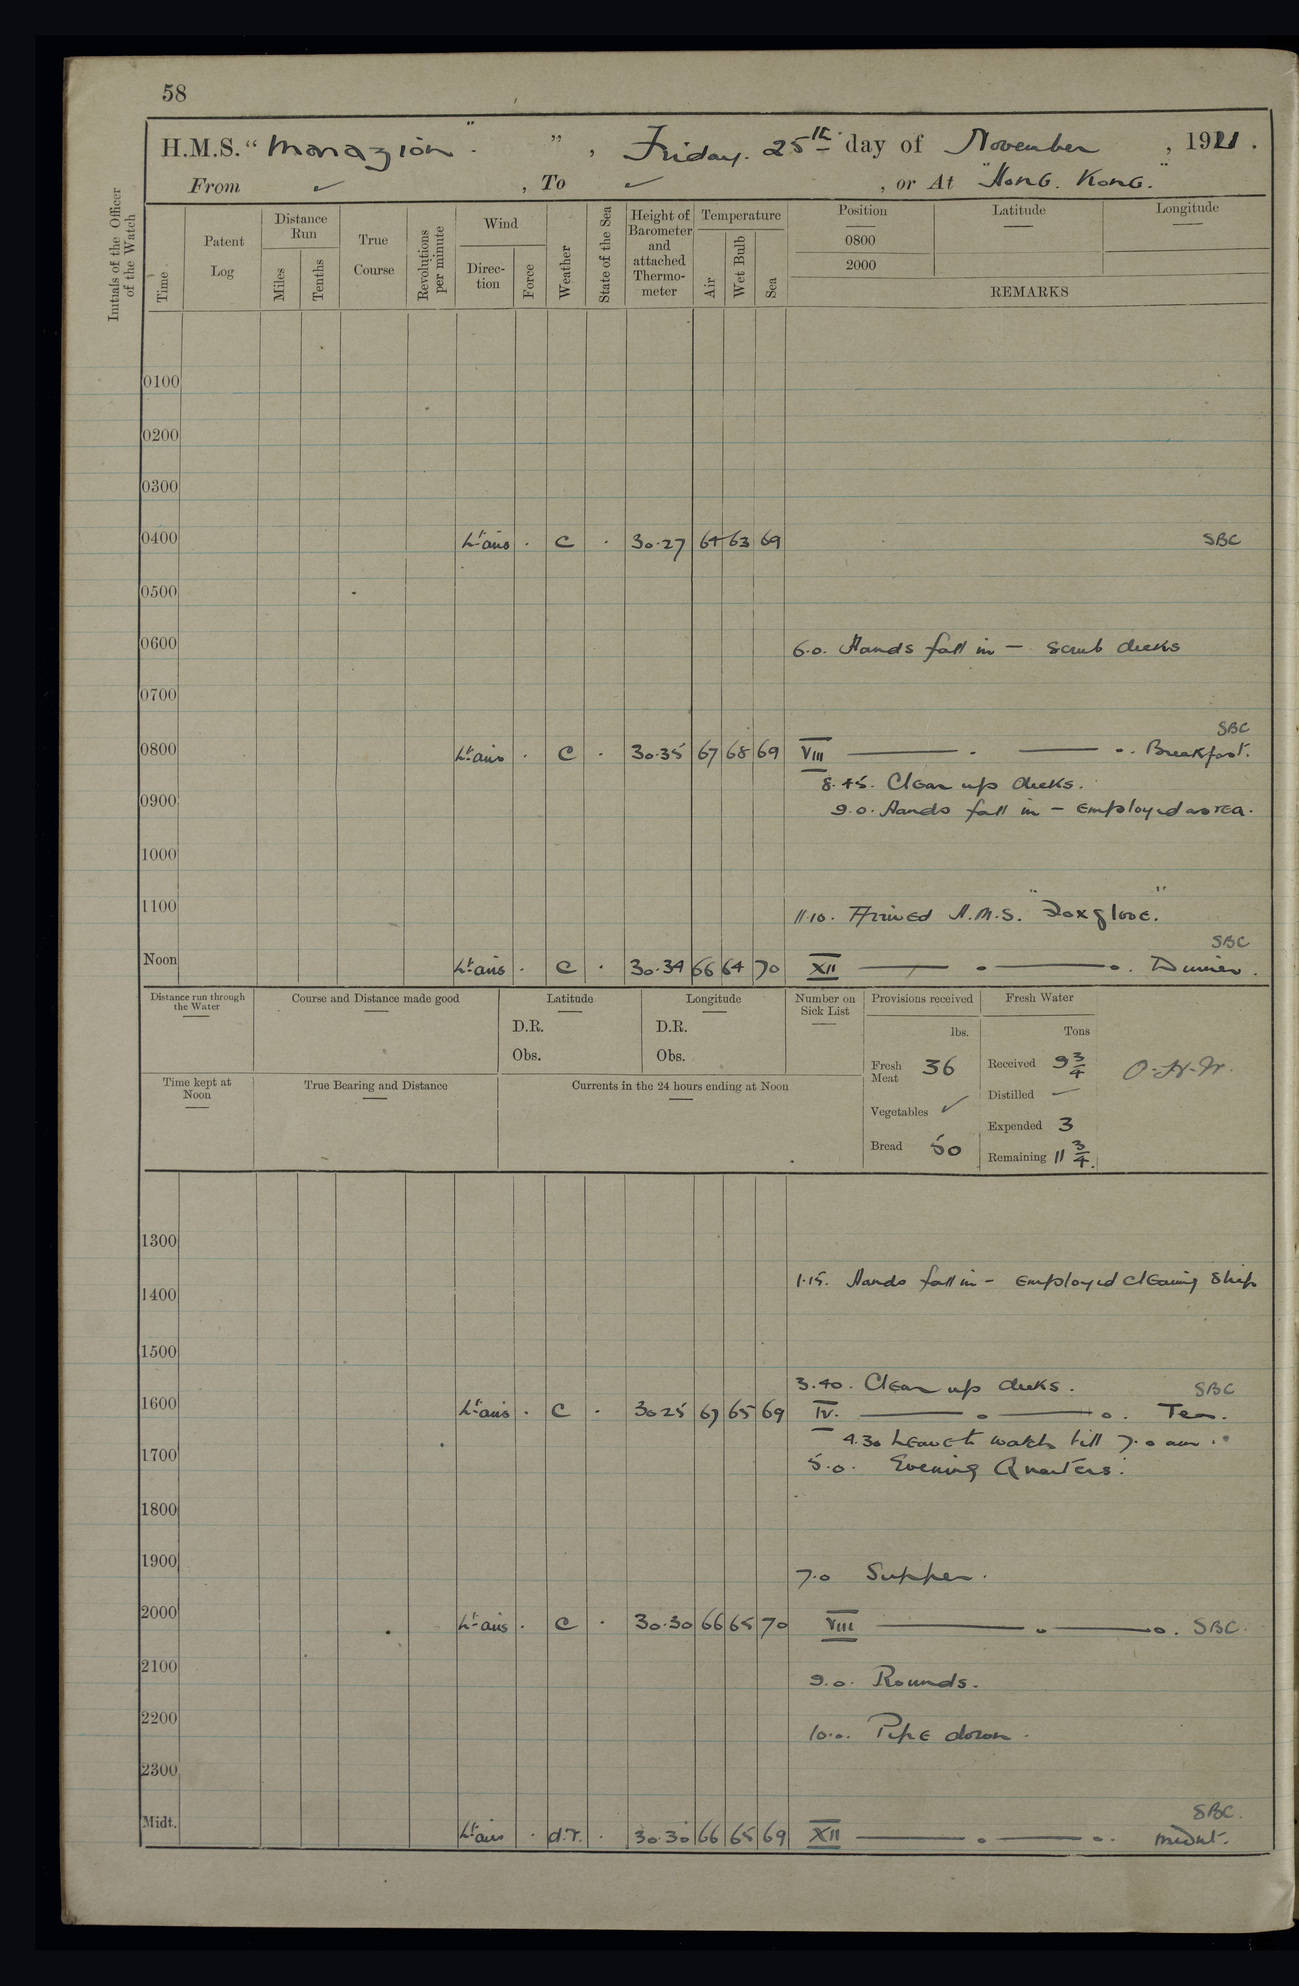 58
H.M.S. "Marazion" ", Friday. 25th day of November, 1921.
From ✓, To ✓, or At "Hong. Kong."
Initials of the Officer of the Watch
Time
Patent Log
Distance Run
Miles
Tenths
True Course
Revolutions per minute
Wind
Direction
Force
Weather
State of the Sea
Height of Barometer and attached Thermometer
Temperature
Air
Wet Bulb
Sea
Position
0800
2000
Latitude
Longitude
REMARKS
0100
0200
0300
0400 Lt airs . C . 30.27 64 63 69 SBC
0500
0600 6.0. Hands fall in — Scrub decks
0700
SBC
0800 Lt airs . C . 30.35 67 68 69 VIII ——— . ——— o. Breakfast.
8.45. Clear up decks.
0900 9.0. Hands fall in — Employed as req.
1000
1100 11.10. Arrived H.M.S. "Foxglove."
SBC
Noon Lt airs . C . 30.34 66 64 70 XII ——— o ——— o. Dinner.
Distance run through the Water
Course and Distance made good
Latitude
D.R.
Obs.
Longitude
D.R.
Obs.
Number on Sick List
Provisions received
lbs.
Fresh Meat 36
Vegetables ✓
Bread 50
Fresh Water
Tons
Received 9 3/4
Distilled —
Expended 3
Remaining 11 3/4.
Time kept at Noon
True Bearing and Distance
Currents in the 24 hours ending at Noon
1300
1.15. Hands fall in — Employed cleaning ship
1400
1500
3.40. Clear up decks. SBC
1600 Lt airs . C . 30.25 67 65 69 IV. ——— o ——— o. Tea.
4.30 Leave to watch till 7.0 am.
1700 5.0. Evening Quarters.
1800
1900 7.0 Supper.
2000 Lt airs . C . 30.30 66 65 70 VIII ——— o ——— o. SBC.
2100 9.0. Rounds.
2200 10.0. Pipe down.
2300
SBC.
Midt. Lt airs . d.r. . 30.30 66 65 69 XII ——— o ——— o. midnt.